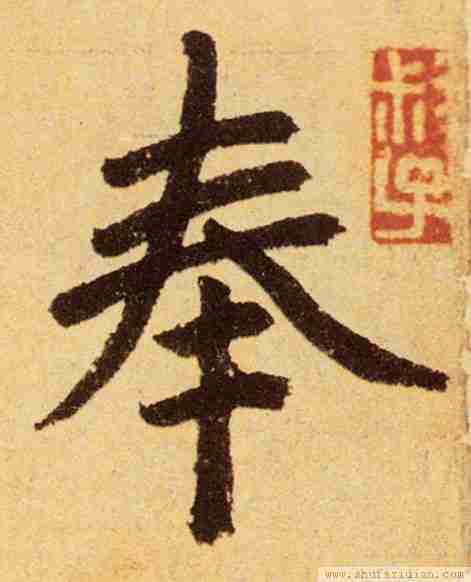 奉
www.shufazidian.com